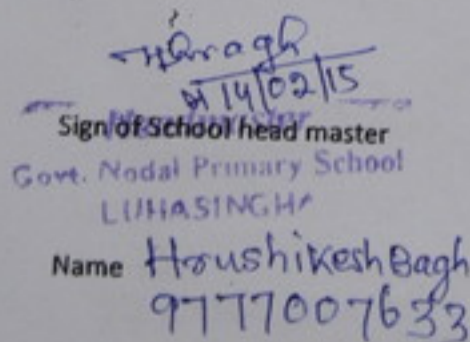 14/02/15
Headmaster
Sign of School head master
Govt. Nodal Primary School
LUHASINGHA
Name Hrushikesh Bagh
9777007633